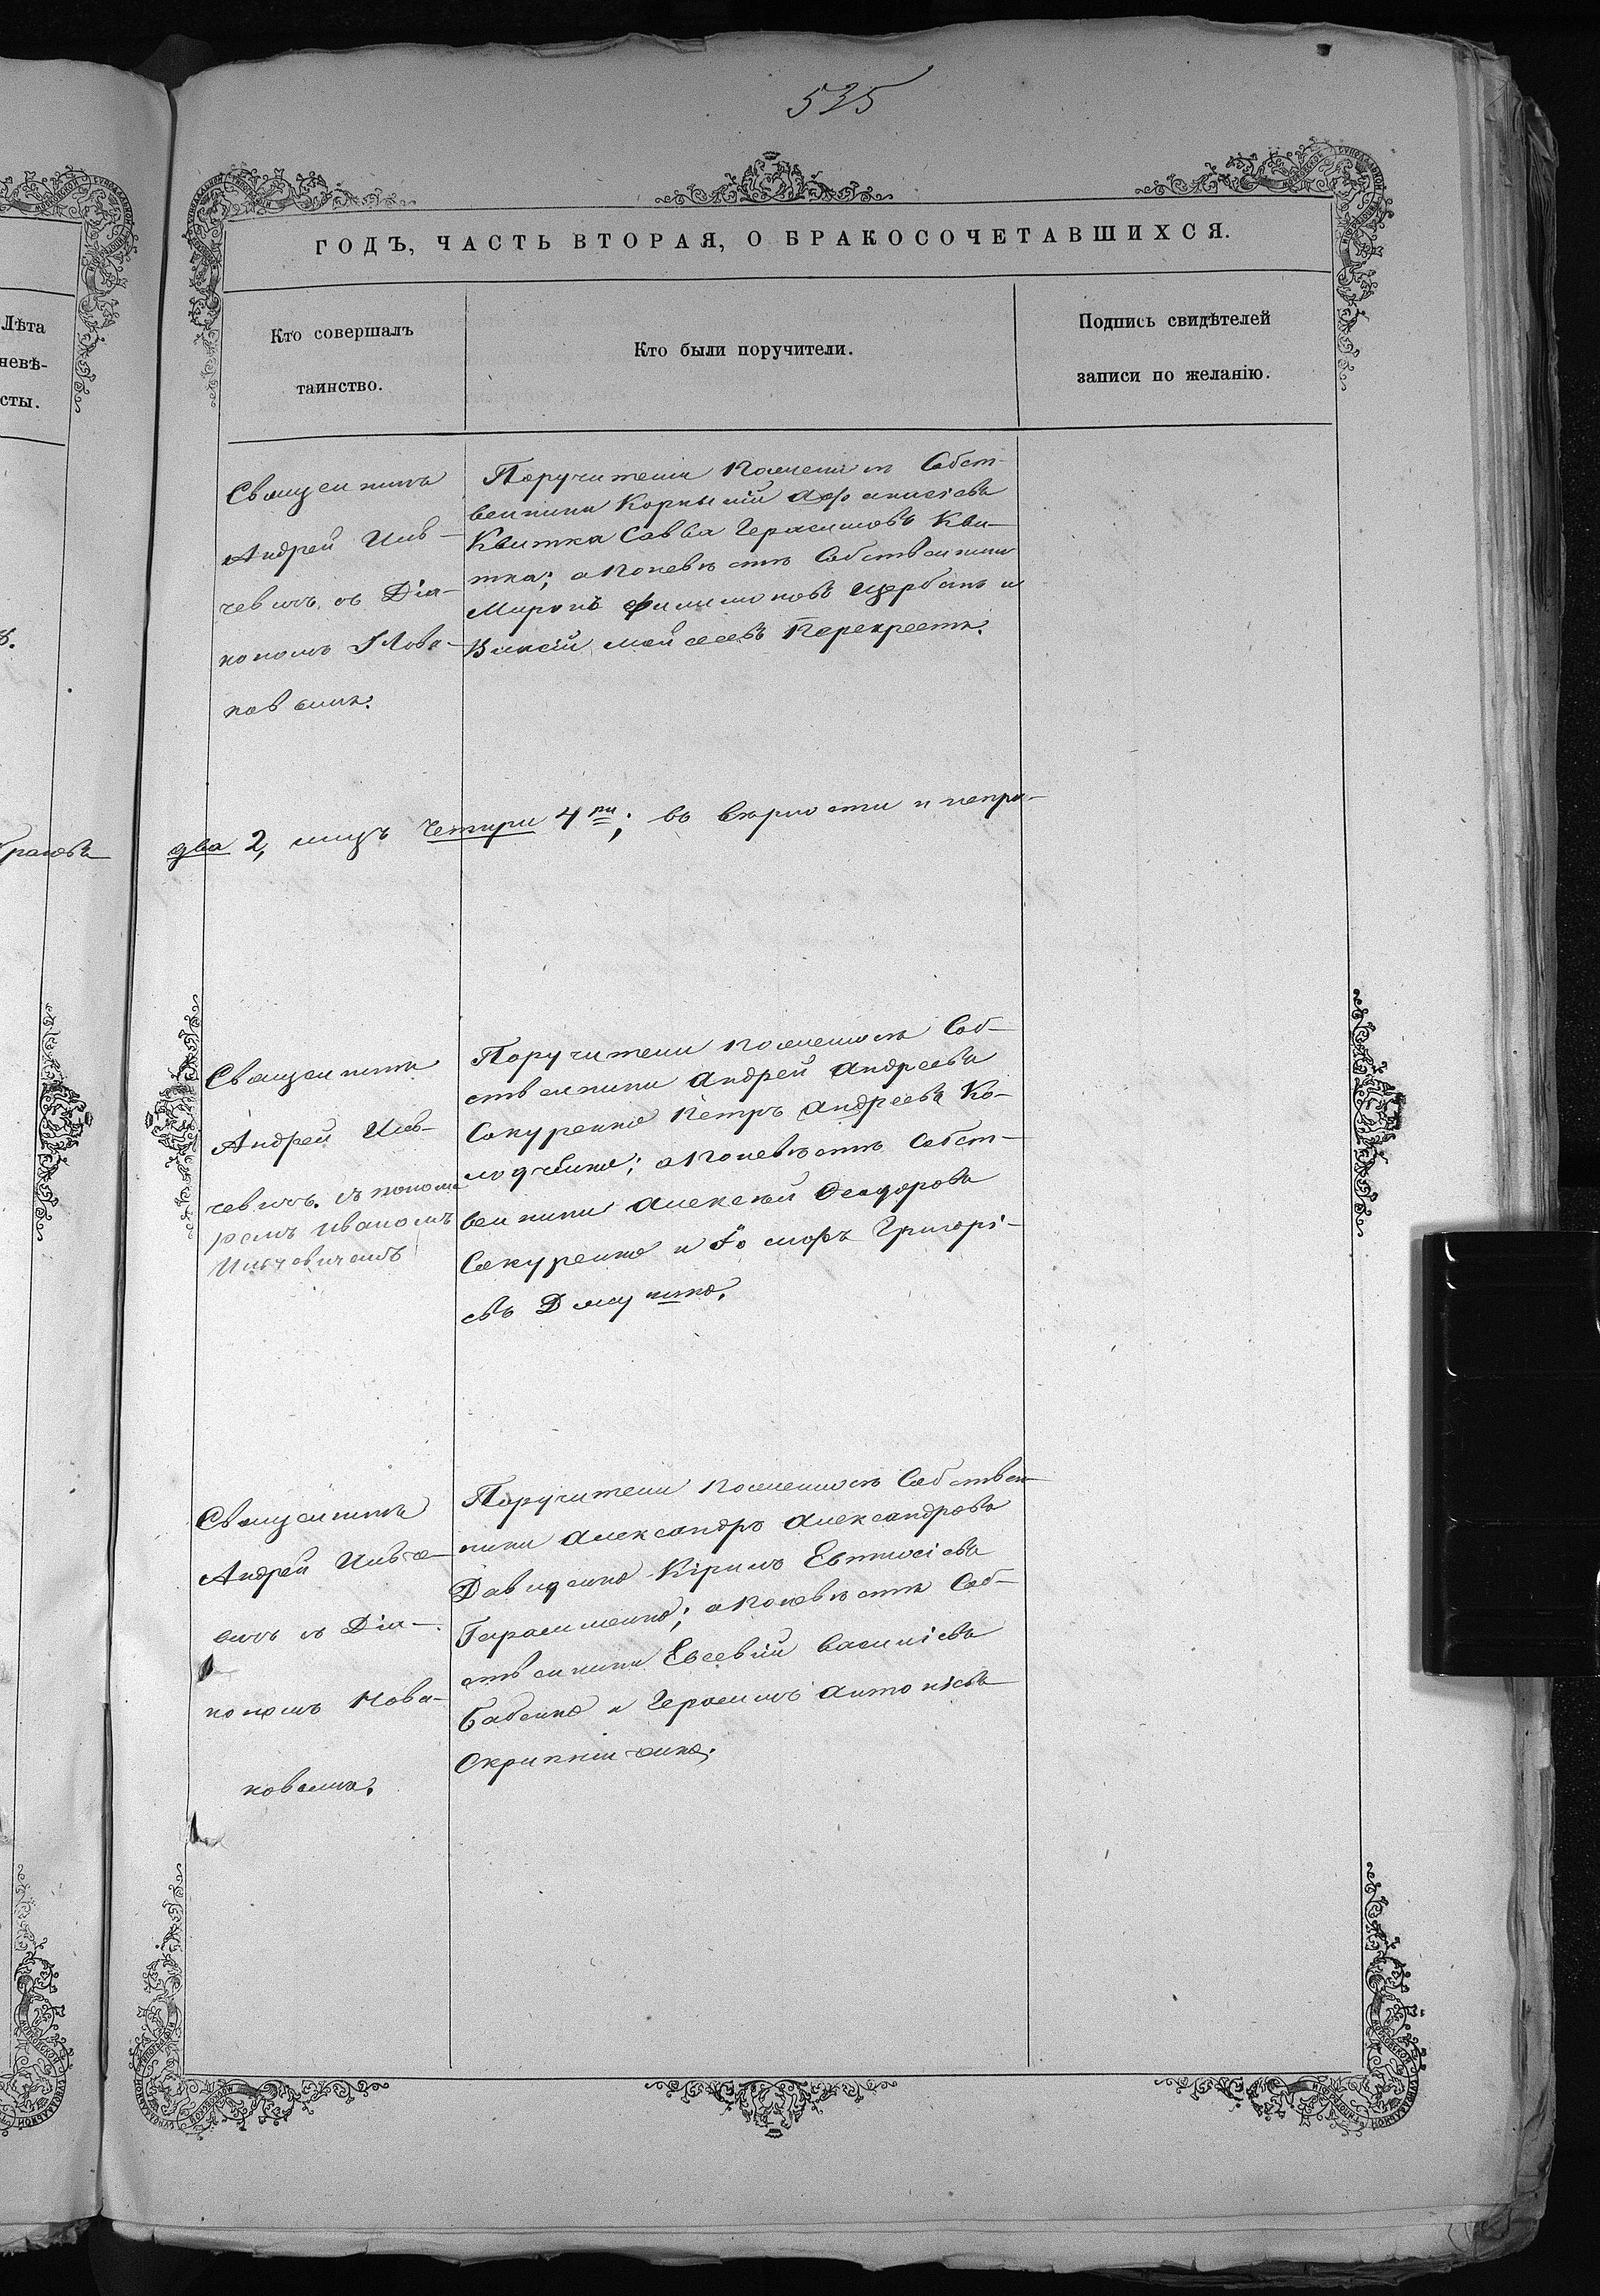 535
ГОДЪ, ЧАСТЬ ВТОРАЯ, О БРАКОСОЧЕТАВШИХСЯ.
Лѣта
невѣ-
сты.
Кто совершалъ
таинство.
Кто были поручители.
Подпись свидѣтелей
записи по желанію.
Священникъ
Андрей Илв-
чевичъ съ Діа-
кономъ Нова-
ковымъ.
Поручители по женихѣ Собст-
венники Корнилій Афанасіевъ
Квитка Савва Герасимовъ Кви-
тка; а по невѣстѣ Собственники
Миронъ Филимоновъ Щербань и
Моисеевъ Перекрестъ.
два 2, лицъ четыри 4ри; въ вѣрности и непра-
Священникъ
Андрей Илв-
чевичъ съ понома
ремъ Иваномъ
Поручители по женихѣ Соб-
ственники Андрей Андреевъ
Сакуренко Петръ Андреевъ Ко-
лодченко; а по невѣстѣ Собст-
венники Алексѣй Феодоровъ
Сакуренко и Григорі-
евъ
Священникъ
Андрей Илвче-
съ Діа-
кономъ Нова-
ковымъ.
Поручители по женихѣ Собствен-
ники Александръ Александровъ
Давиденко Кірилъ Евтихіевъ
Герасименко; а по невѣстѣ Соб-
ственники Евсевій Василіевъ
Бабенко и Герасимъ Антоніевъ
Скрипниченко.